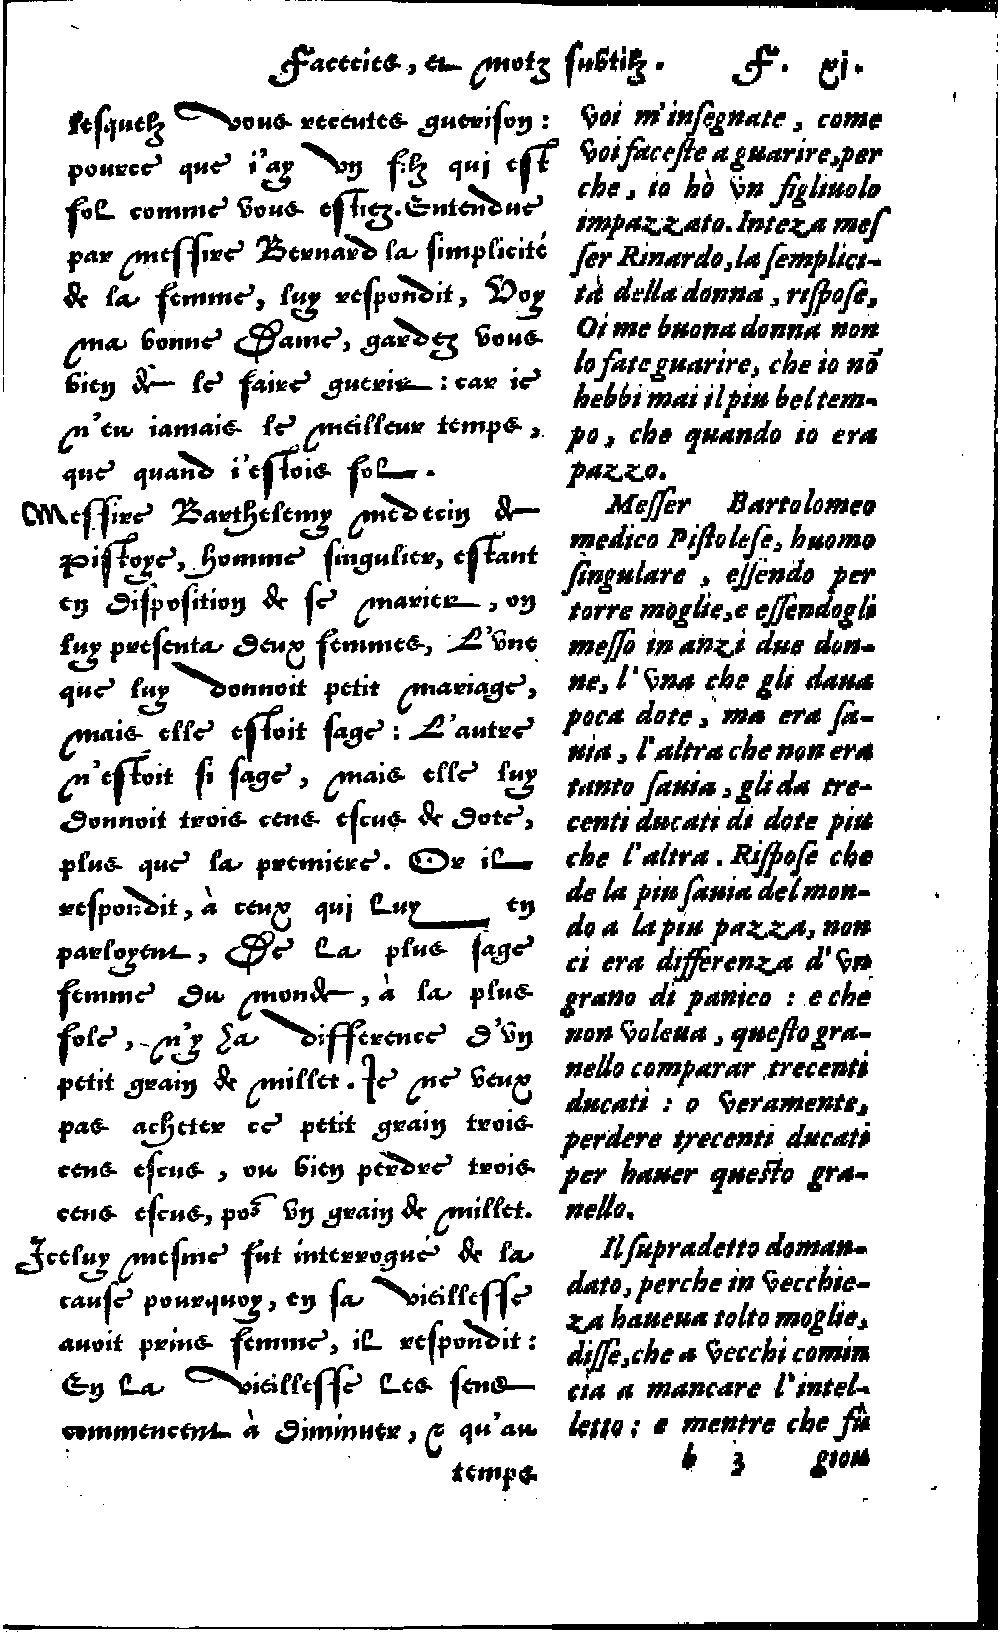 Facecies, et motz subtilz. F. xj.
lesquelz vous receutes guerison:
pource que i'ay vn filz qui est
fol comme vous estiez. Entendue
par messire Bernard la simplicité
de la femme, luy respondit, Voy
ma bonne Dame, gardez vous
bien de le faire guerir: car ie
n'eu iamais le meilleur temps,
que quand i'estois fol.
Messire Barthelemy medecin de
Pistoye, homme singulier, estant
en disposition de se marier, on
luy presenta deux femmes, L'vne
que luy donnoit petit mariage,
mais elle estoit sage: L'autre
n'estoit si sage, mais elle luy
donnoit trois cens escus de dote,
plus que la premiere. Or il
respondit, à ceux qui luy en
parloyent, De la plus sage
femme du monde, à la plus
fole, n'y ha difference d'vn
petit grain de millet. Ie ne veux
pas acheter ce petit grain trois
cens escus, ou bien perdre trois
cens escus, por vn grain de millet.
Iceluy mesme fut interrogué de la
cause pourquoy, en sa vieillesse
auoit prins femme, il respondit:
En la vieillesse les sens
commencent à diminuer, & qu'au
temps
voi m'insegnate, come
voi faceste a guarire, per
che, io hò vn figliuolo
impazzato. Inteza mes
ser Rinardo, la semplici-
tà della donna, rispose,
Oi me buona donna non
lo fate guarire, che io nō
hebbi mai il piu bel tem-
po, che quando io era
pazzo.
Messer Bartolomeo
medico Pistolese, huomo
singulare, essendo per
torre moglie, e essendogli
messo in anzi due don-
ne, l'vna che gli daua
poca dote, ma era sa-
uia, l'altra che non era
tanto sauia, gli da tre-
centi ducati di dote piu
che l'altra. Rispose che
de la piu sauia del mon-
do a la piu pazza, non
ci era differenza d'vn
grano di panico: e che
non voleua, questo gra-
nello comparar trecenti
ducati: o veramente,
perdere trecenti ducati
per hauer questo gra-
nello.
Il supradetto doman-
dato, perche in vecchie-
za haueua tolto moglie,
disse, che a vecchi comin
cia a mancare l'intel-
letto: e mentre che fù
b 3 giou